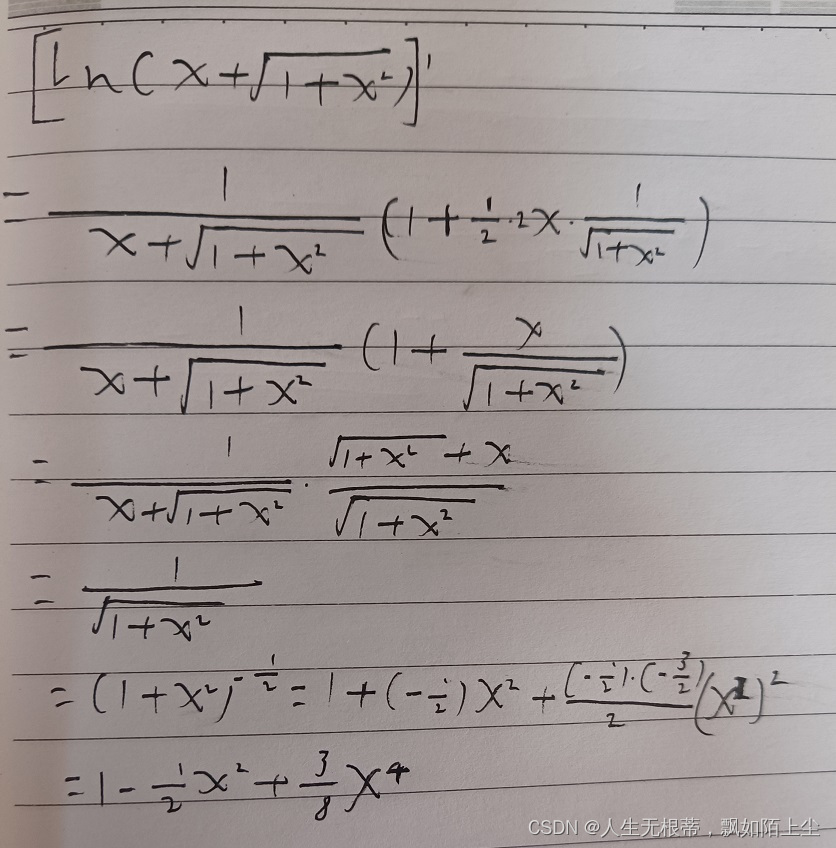 [ln(x+√(1+x²))]'
= 1/(x+√(1+x²)) (1+1/2·2x·1/√(1+x²))
= 1/(x+√(1+x²)) (1+x/√(1+x²))
= 1/(x+√(1+x²)) · (√(1+x²)+x)/√(1+x²)
= 1/√(1+x²)
= (1+x²)^(-1/2) = 1+(-1/2)x²+((-1/2)·(-3/2))/2 (x²)²
= 1-1/2x²+3/8x⁴
CSDN @人生无根蒂，飘如陌上尘